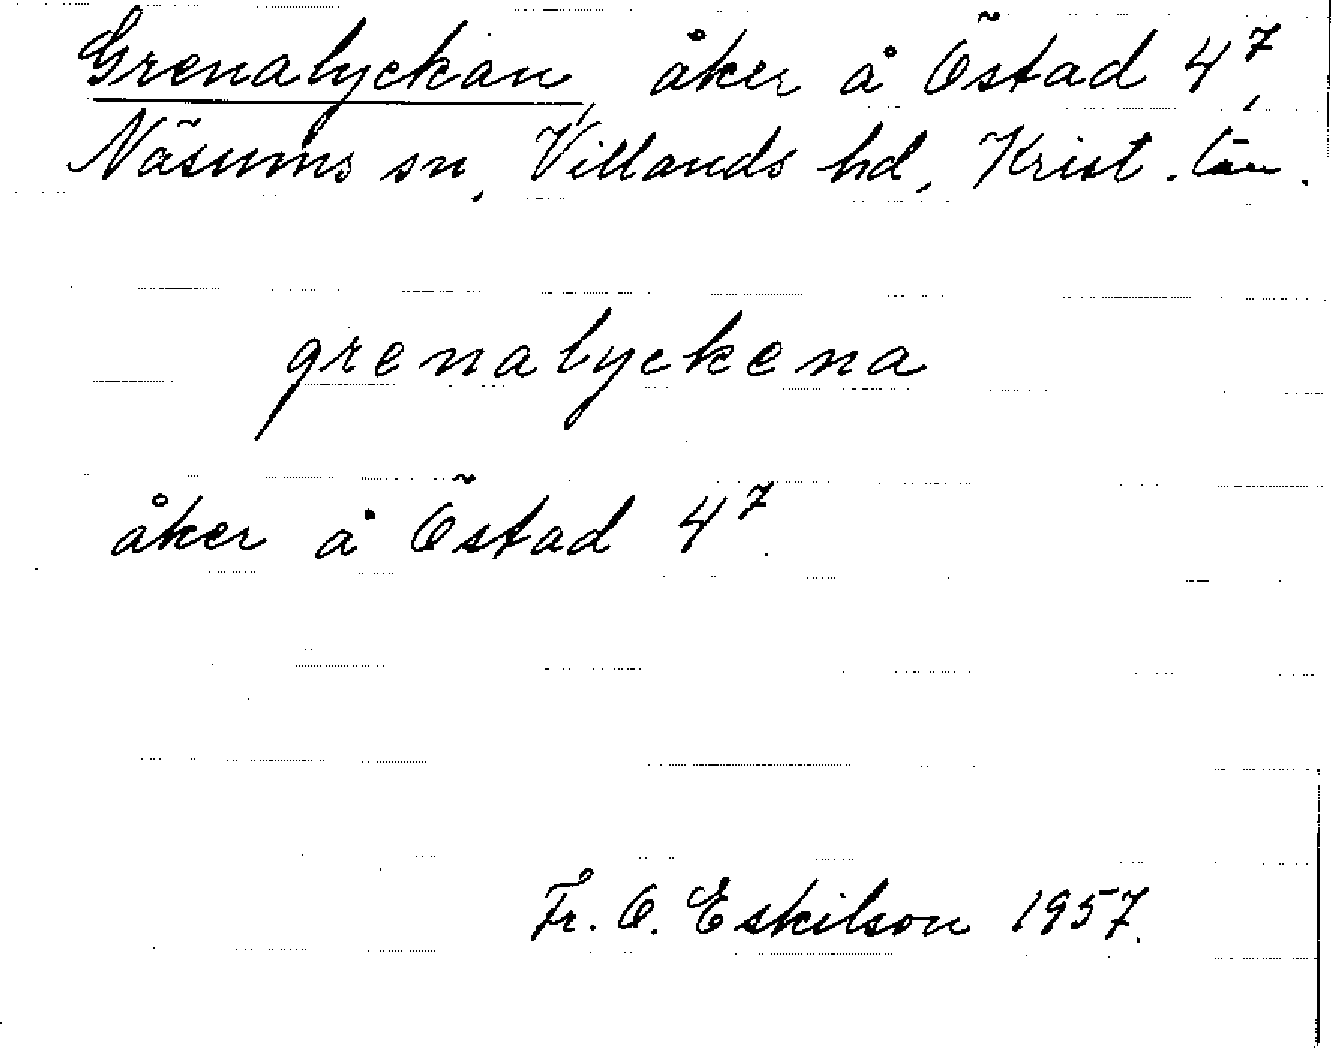 Grenalyckan, åker å Östad 4⁷,
Näsums sn, Villands hd, Krist. län.
grenalyckena
åker å Östad 4⁷.
Fr. O. Eskilson 1957.